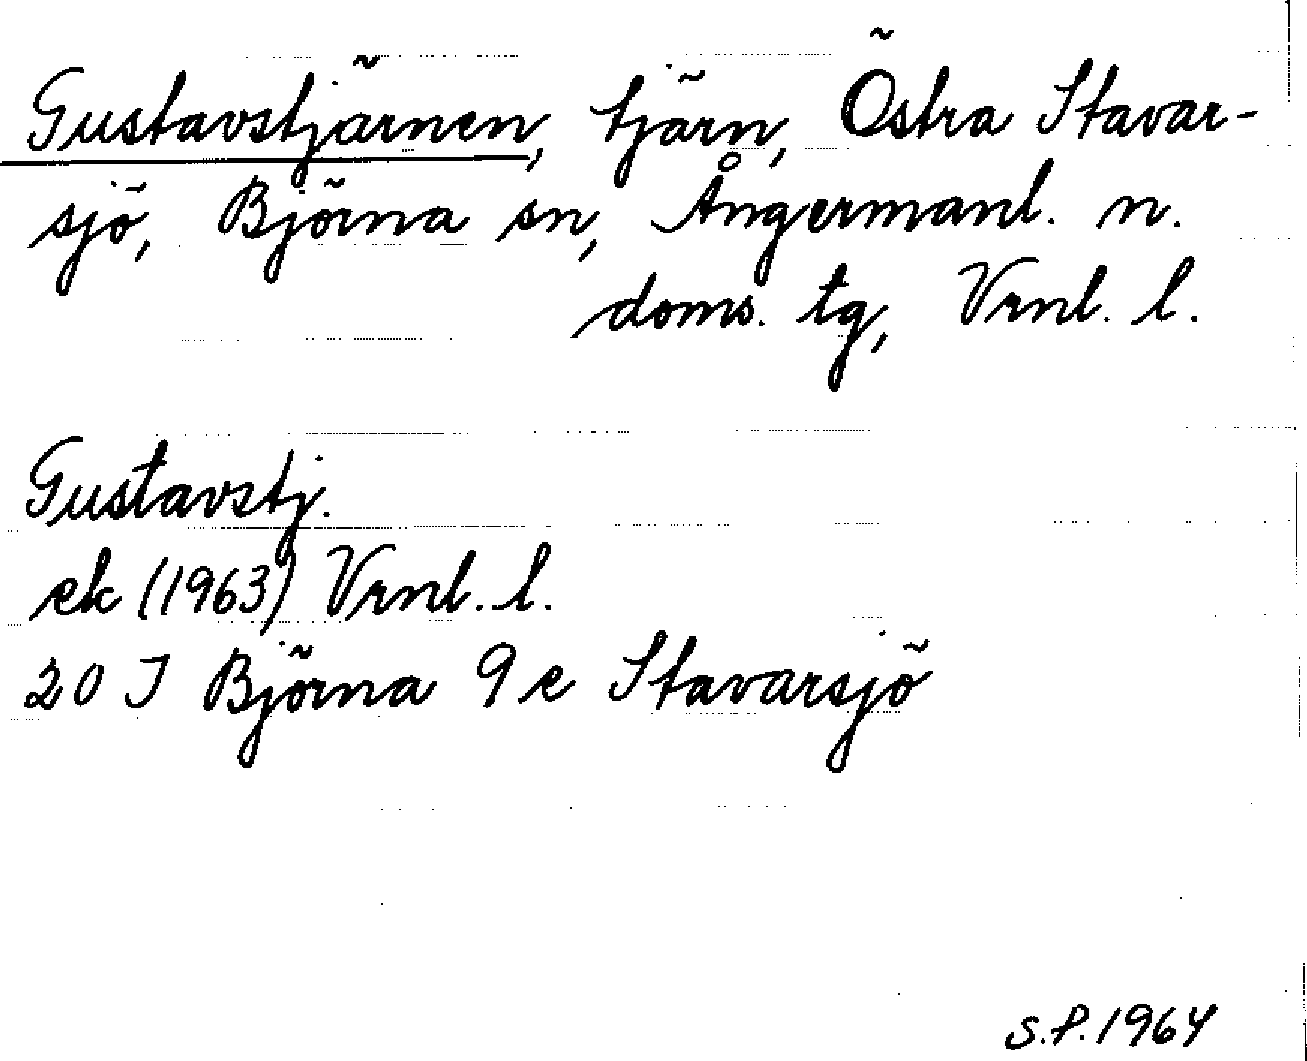 Gustavstjärnen, tjärn, Östra Stavar-
sjö, Björna sn, Ångermanl. n.
doms. tg, Vrnl. l.
Gustavstj.
ek (1963) Vrnl. l.
20 J Björna 9e Stavarsjö
S.P. 1964